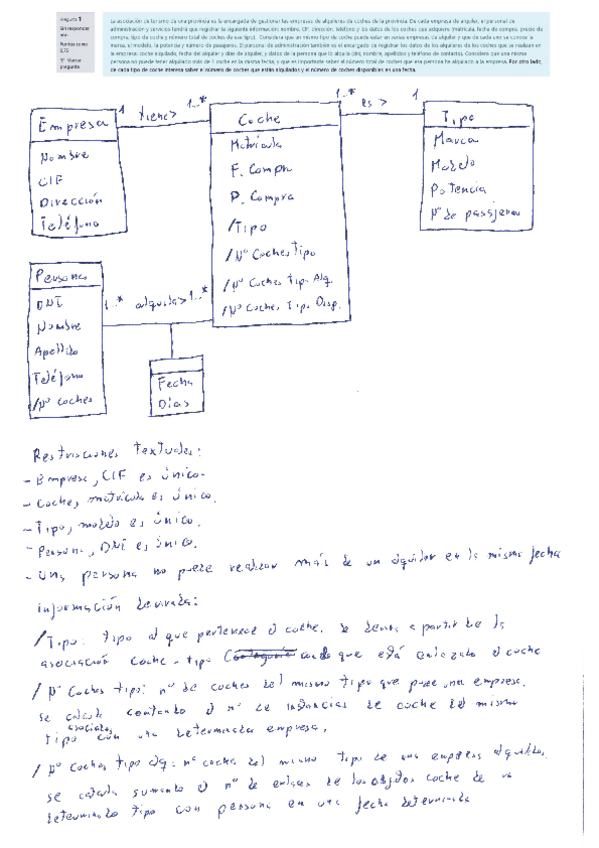 Pregunta 1
Sin responder aún
Puntúa como
Marcar pregunta
La asociación de turismo de una provincia es la encargada de gestionar las empresas de alquileres de coches de la provincia. De cada empresa de alquiler, el personal de
administración y servicios tendrá que registrar la siguiente información: nombre, CIF, dirección, teléfono y los datos de los coches que adquiere (matrícula, fecha de compra, precio de
compra, tipo de coche y número total de coches de ese tipo). Considera que un mismo tipo de coche puede estar en varias empresas de alquiler y que de cada uno se conoce la
marca, el modelo, la potencia y número de pasajeros. El personal de administración también es el encargado de registrar los datos de los alquileres de los coches que se realizan en
la empresa: coche alquilado, fecha del alquiler y días de alquiler, y datos de la persona que lo alquila (dni, nombre, apellidos y teléfono de contacto). Considera que una misma
persona no puede tener alquilado más de 1 coche en la misma fecha, y que es importante saber el número total de coches que esa persona ha alquilado a la empresa. Por otro lado,
de cada tipo de coche interesa saber el número de coches que están alquilados y el número de coches disponibles en una fecha.
Empresa
Nombre
CIF
Dirección
Teléfono
1 tiene> 1..*
Coche
Matrícula
F. Compra
P. Compra
/Tipo
/Nº Coches Tipo
/Nº Coches Tip. Alq.
/Nº Coches Tipo Disp.
1..* es > 1
Tipo
Marca
Modelo
Potencia
Nº de pasajeros
Persona
DNI
Nombre
Apellido
Teléfono
/Nº coches
1..* alquila> 1..*
Fecha
Días
Restricciones textuales:
- Empresa, CIF es único.
- Coche, matrícula es único.
- Tipo, modelo es único.
- Persona, DNI es único.
- Una persona no puede realizar más de un alquiler en la misma fecha
información derivada:
/Tipo: tipo al que pertenece el coche. Se deriva a partir de la
asociación coche - tipo con de que está enlazado el coche
/Nº Coches tipo: nº de coches del mismo tipo que posee una empresa.
se calcula contando el nº de instancias de coche del mismo
tipo asociados con una determinada empresa.
/Nº Coches tipo alq: nº coche del mismo tipo de una empresa alquilados.
se calcula sumando el nº de enlaces de los objetos coche de un
determinado tipo con persona en una fecha determinada